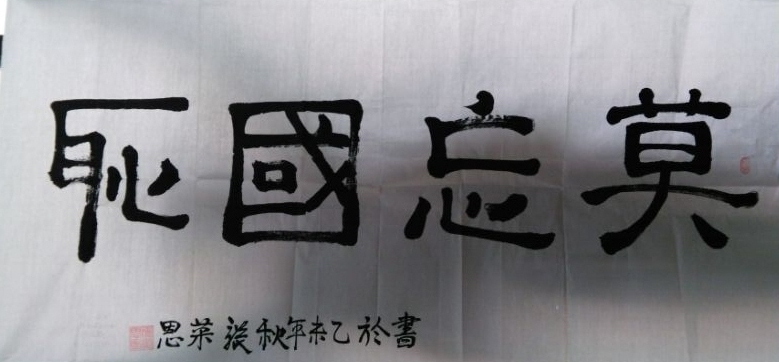 莫忘國恥
書於乙未年秋張荣恩